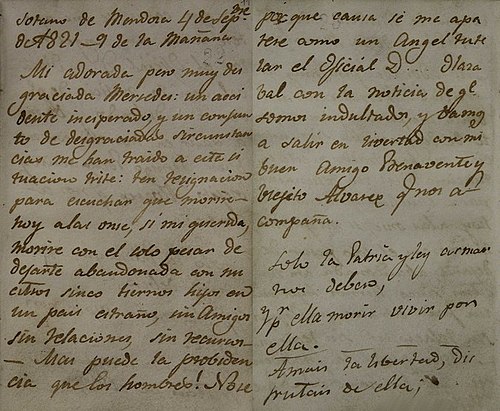 Sotano de Mendoza 4 de Sepbre
de 1821_9 de la Mañana
Mi adorada pero muy des
graciada Mersedes: un acci
dente inesperado, y un conjun
to de desgraciadas sircunstan
cias me han traido a esta si
tuacion triste: ten resignacion
para escuchar que morire
hoy a las onse, si mi querida,
morire con el solo pesar de
dejarte abandonada con nu
estros sinco tiernos hijos en
un pais estraño, sin Amigos
sin relaciones, sin recursos
— Mas puede la probiden
cia que los hombres! No se
por que causa se me apa
rese como un Angel tute
lar el Oficial D... Olaza
bal con la noticia de qe.
somos indultados, y vamos
a salir en libertad con mi
buen Amigo Benavente y
viejito Alvarez qe. nos a-
compaña.
Solo la Patria y ley a
nos debero,
Y pr. ella morir vivir por
ella.
Amais la libertad, dis
frutais de ella;